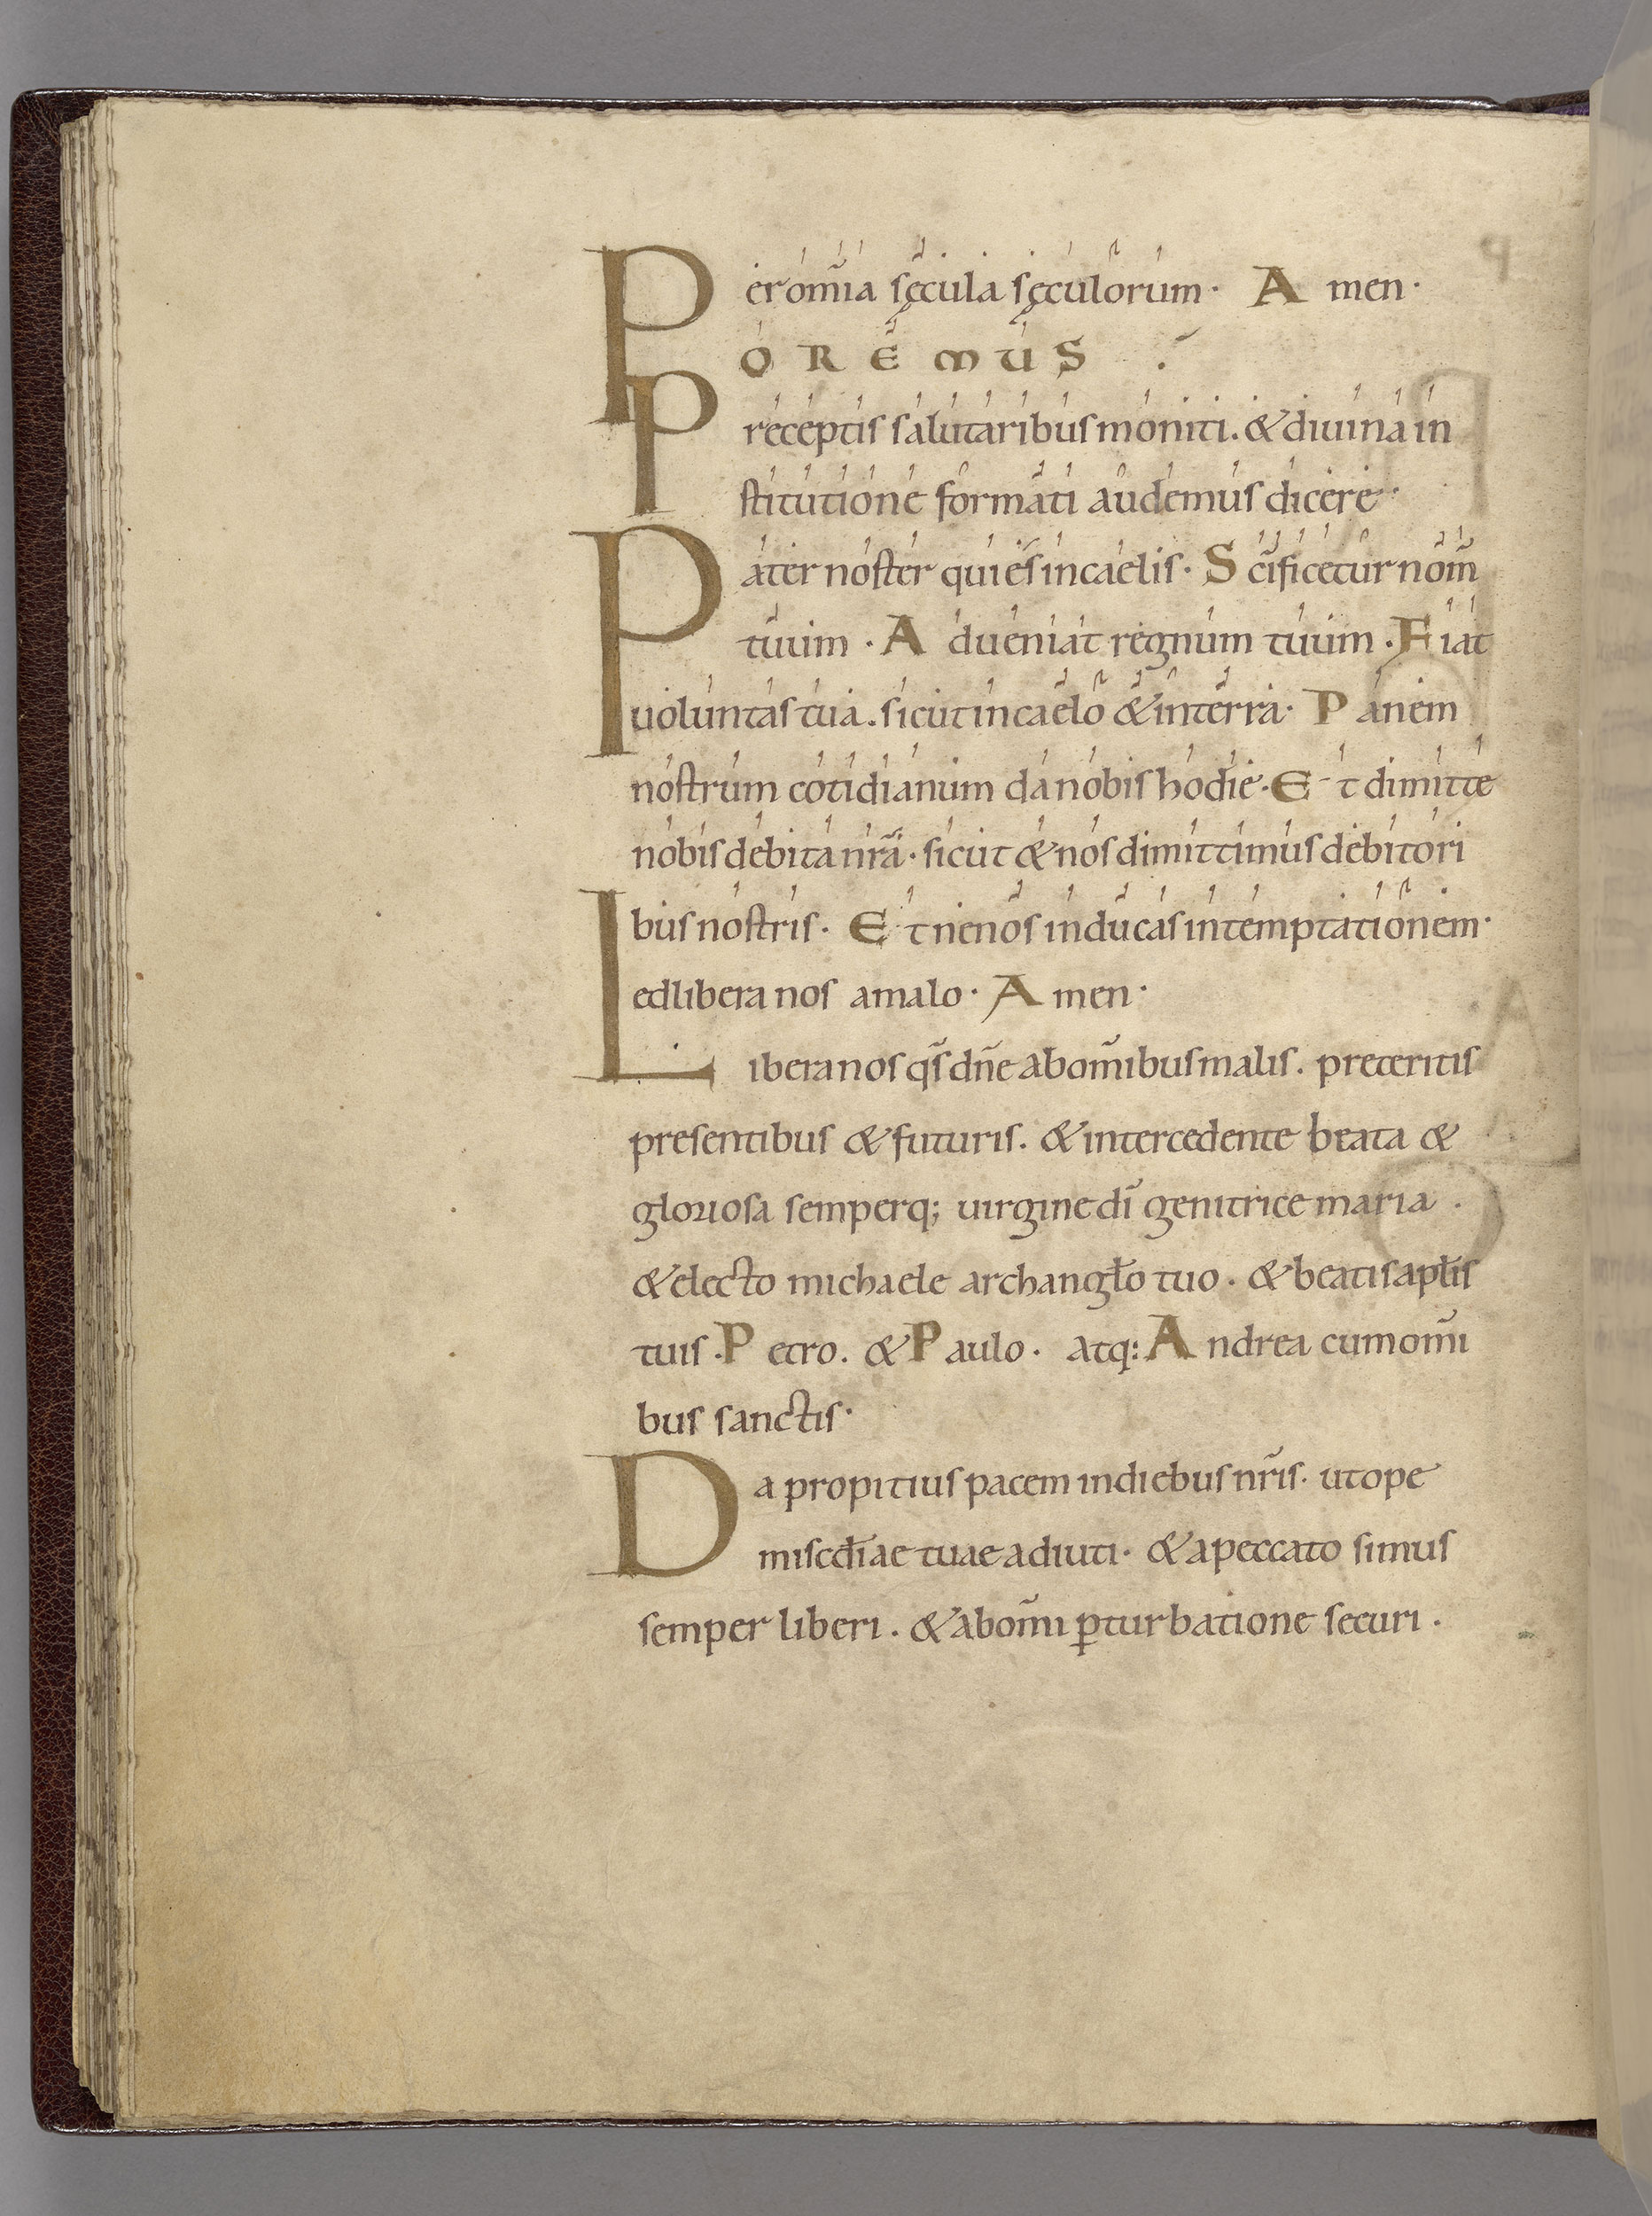 Per om̅ia sęcula sęculorum · Amen ·
OREMUS
Preceptis salutaribus moniti . & diuina in
stitutione formati audemus dicere ·
Pater noster qui es in caelis · Sc̅ificetur nom̅
tuum · Adueniat regnum tuum . Fiat
uoluntas tua . sicut in caelo & in terra · Panem
nostrum cotidianum da nobis hodie · Et dimitte
nobis debita nr̅a · sicut & nos dimittimus debitori
bus nostris · Et ne nos inducas in temptationem ·
sed libera nos a malo · Amen ·
Libera nos qs̅ dn̅e ab om̅ibus malis . preteritis
presentibus & futuris . & intercedente beata &
gloriosa semperq; uirgine di̅ genitrice maria .
& electo michaele archangl̅o tuo . & beatis apl̅is
tuis . Petro . & Paulo · atq: Andrea cum om̅i
bus sanctis ·
Da propitius pacem in diebus nr̅is · ut ope
miscd̅iae tuae adiuti · & a peccato simus
semper liberi . & ab om̅i p̱turbatione securi .